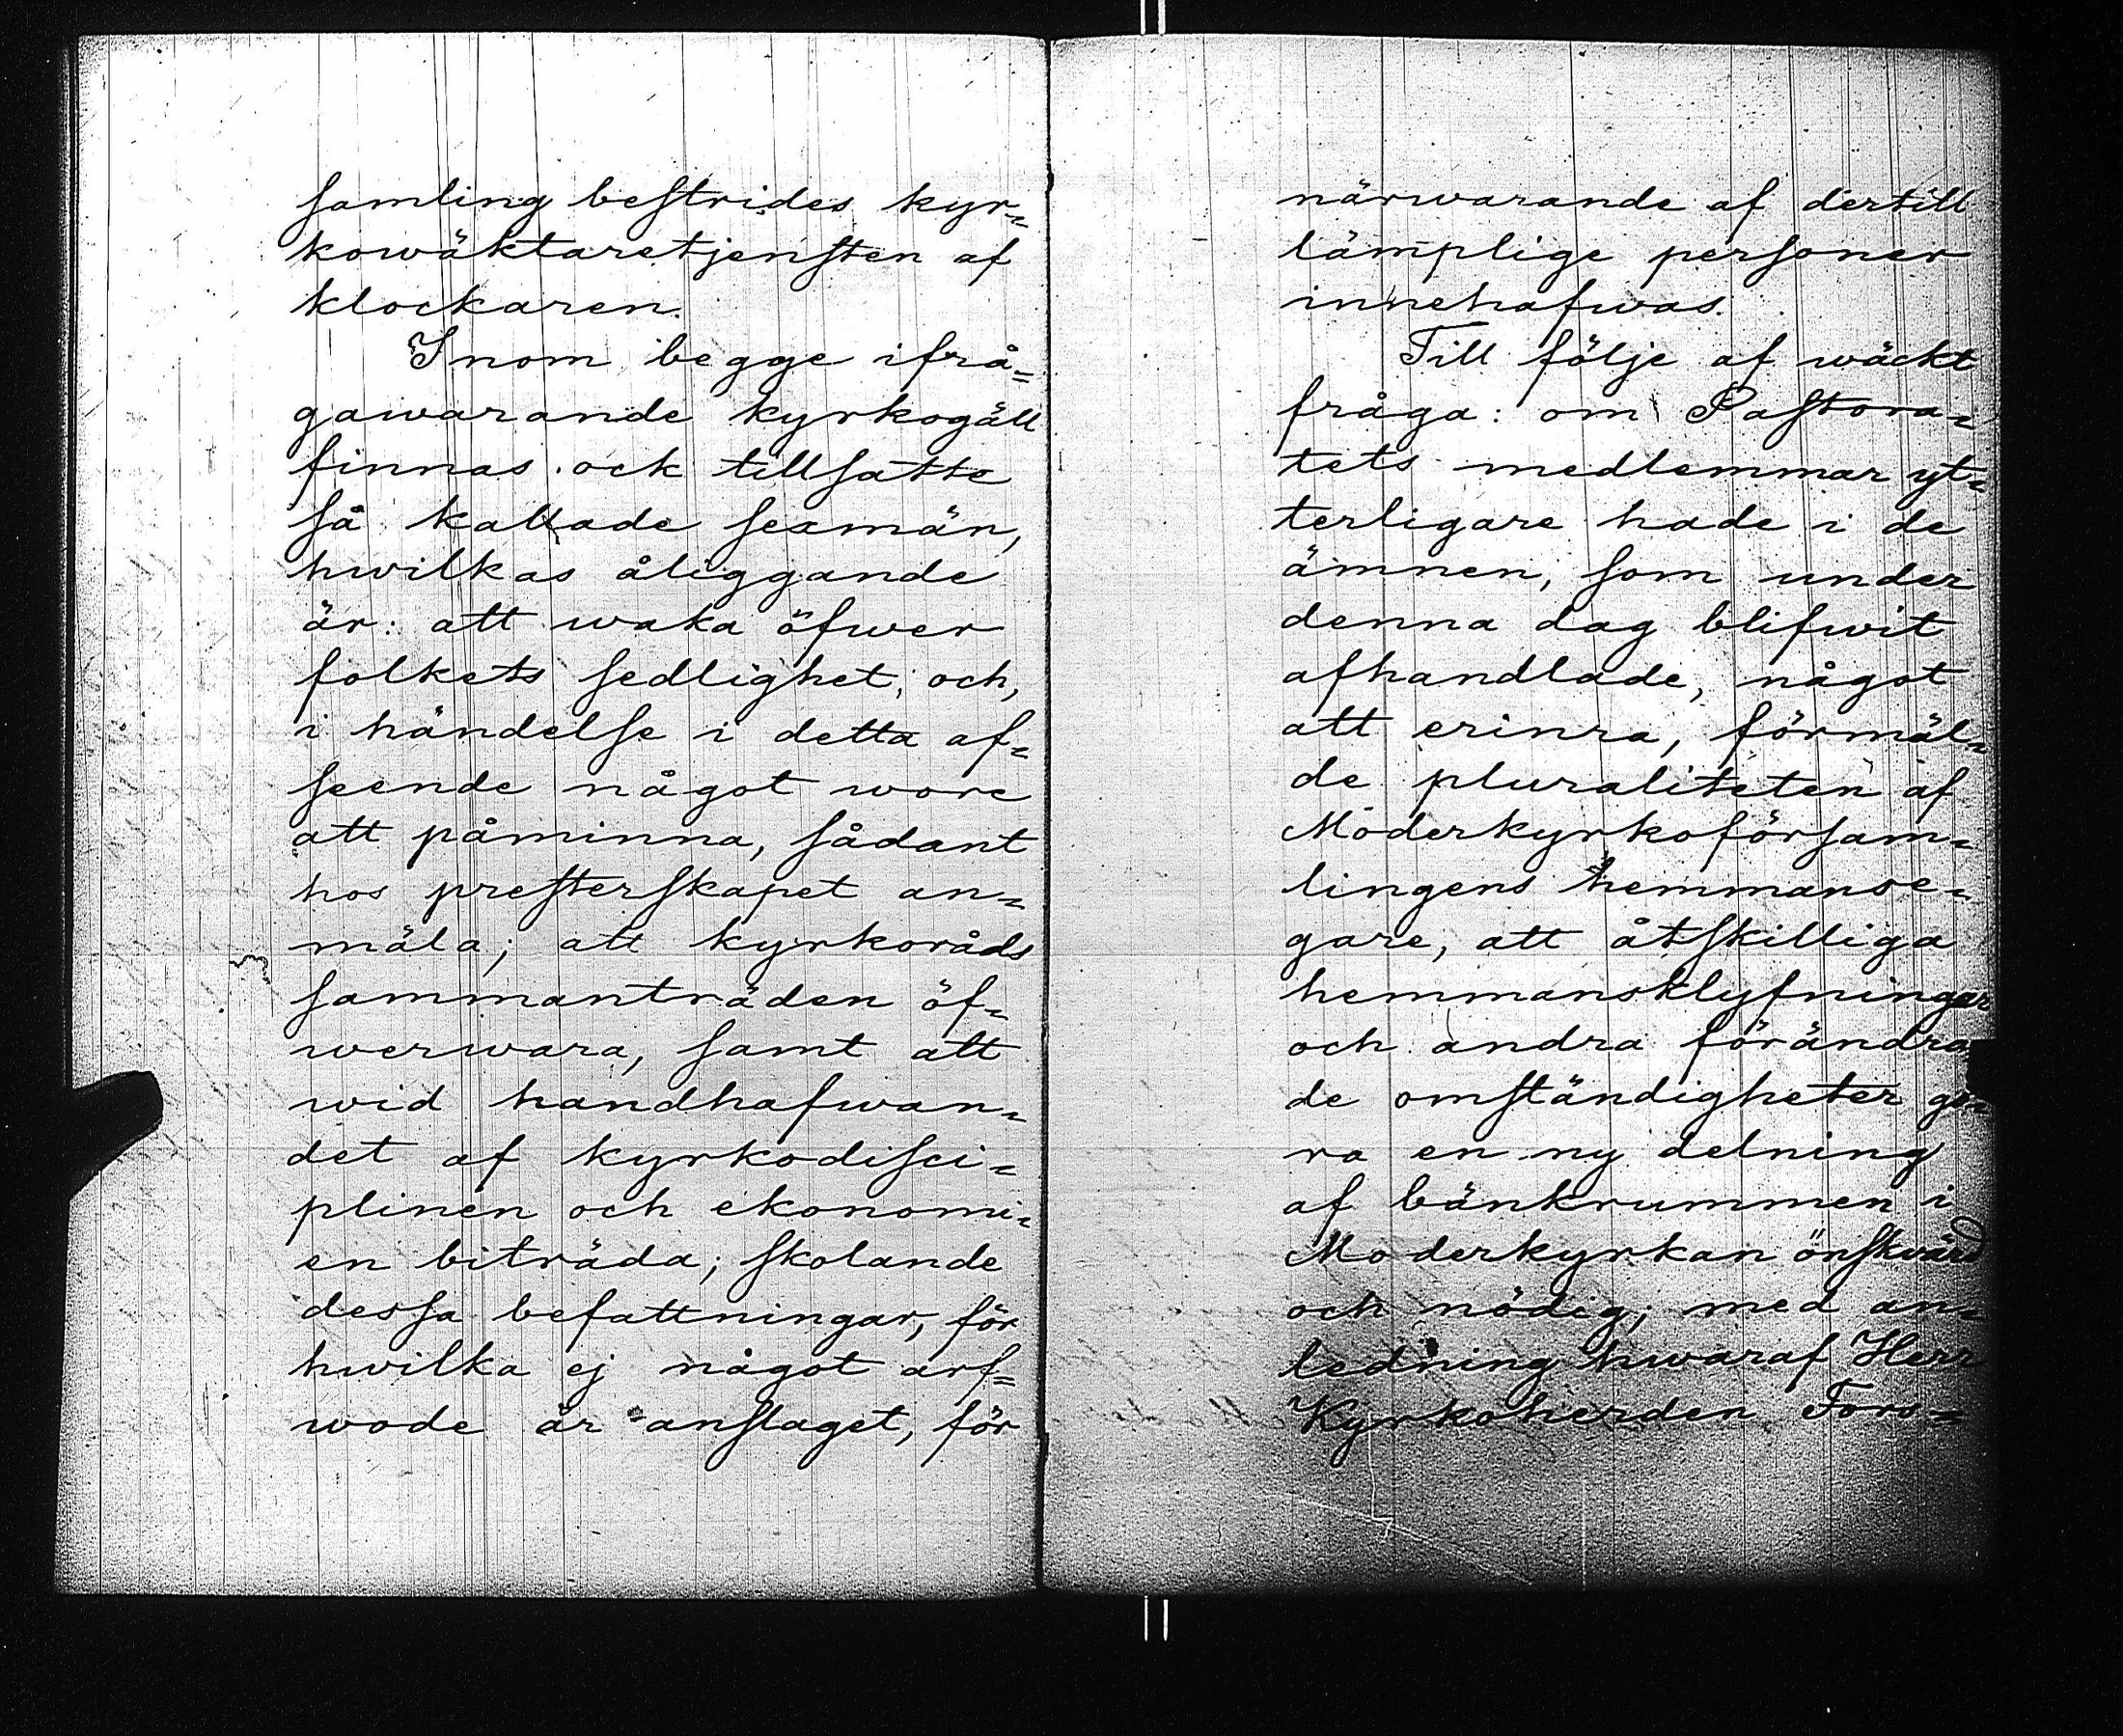 samling bestrides kyr=
kowäktaretjensten af
klockaren.
Inom begge ifrå=
gawarande kyrkogäll
finnas ock tillsatte
så kallade sexmän,
hwilkas åliggande
är: att waka öfwer
folkets sedlighet, och,
i händelse i detta af=
seende något wore
att påminna, sådant
hos presterskapet an=
mäla; att kyrkoråds
sammanträden öf=
werwara, samt att
wid handhafwan=
det af kyrkodisci=
plinen och ekonomi=
en biträda; skolande
dessa befattningar, för
hwilka ej något arf=
wode är anslaget, för
närwarande af dertill
lämplige personer
innehafwas.
Till följe af wäckt
fråga: om Pastora=
tets medlemmar yt=
terligare hade i de
ämnen, som under
denna dag blifwit
afhandlade, något
att erinra, förmäl=
de pluraliteten af
Moderkyrkoförsam=
lingens hemmanse=
gare, att åtskilliga
hemmansklyfningar
och andra förändra
de omständigheter gö=
ra en ny delning
af bänkrummen i
Moderkyrkan önskvärd
och nödig; med an=
ledning hwaraf Herr
Kyrkoherden Fors=